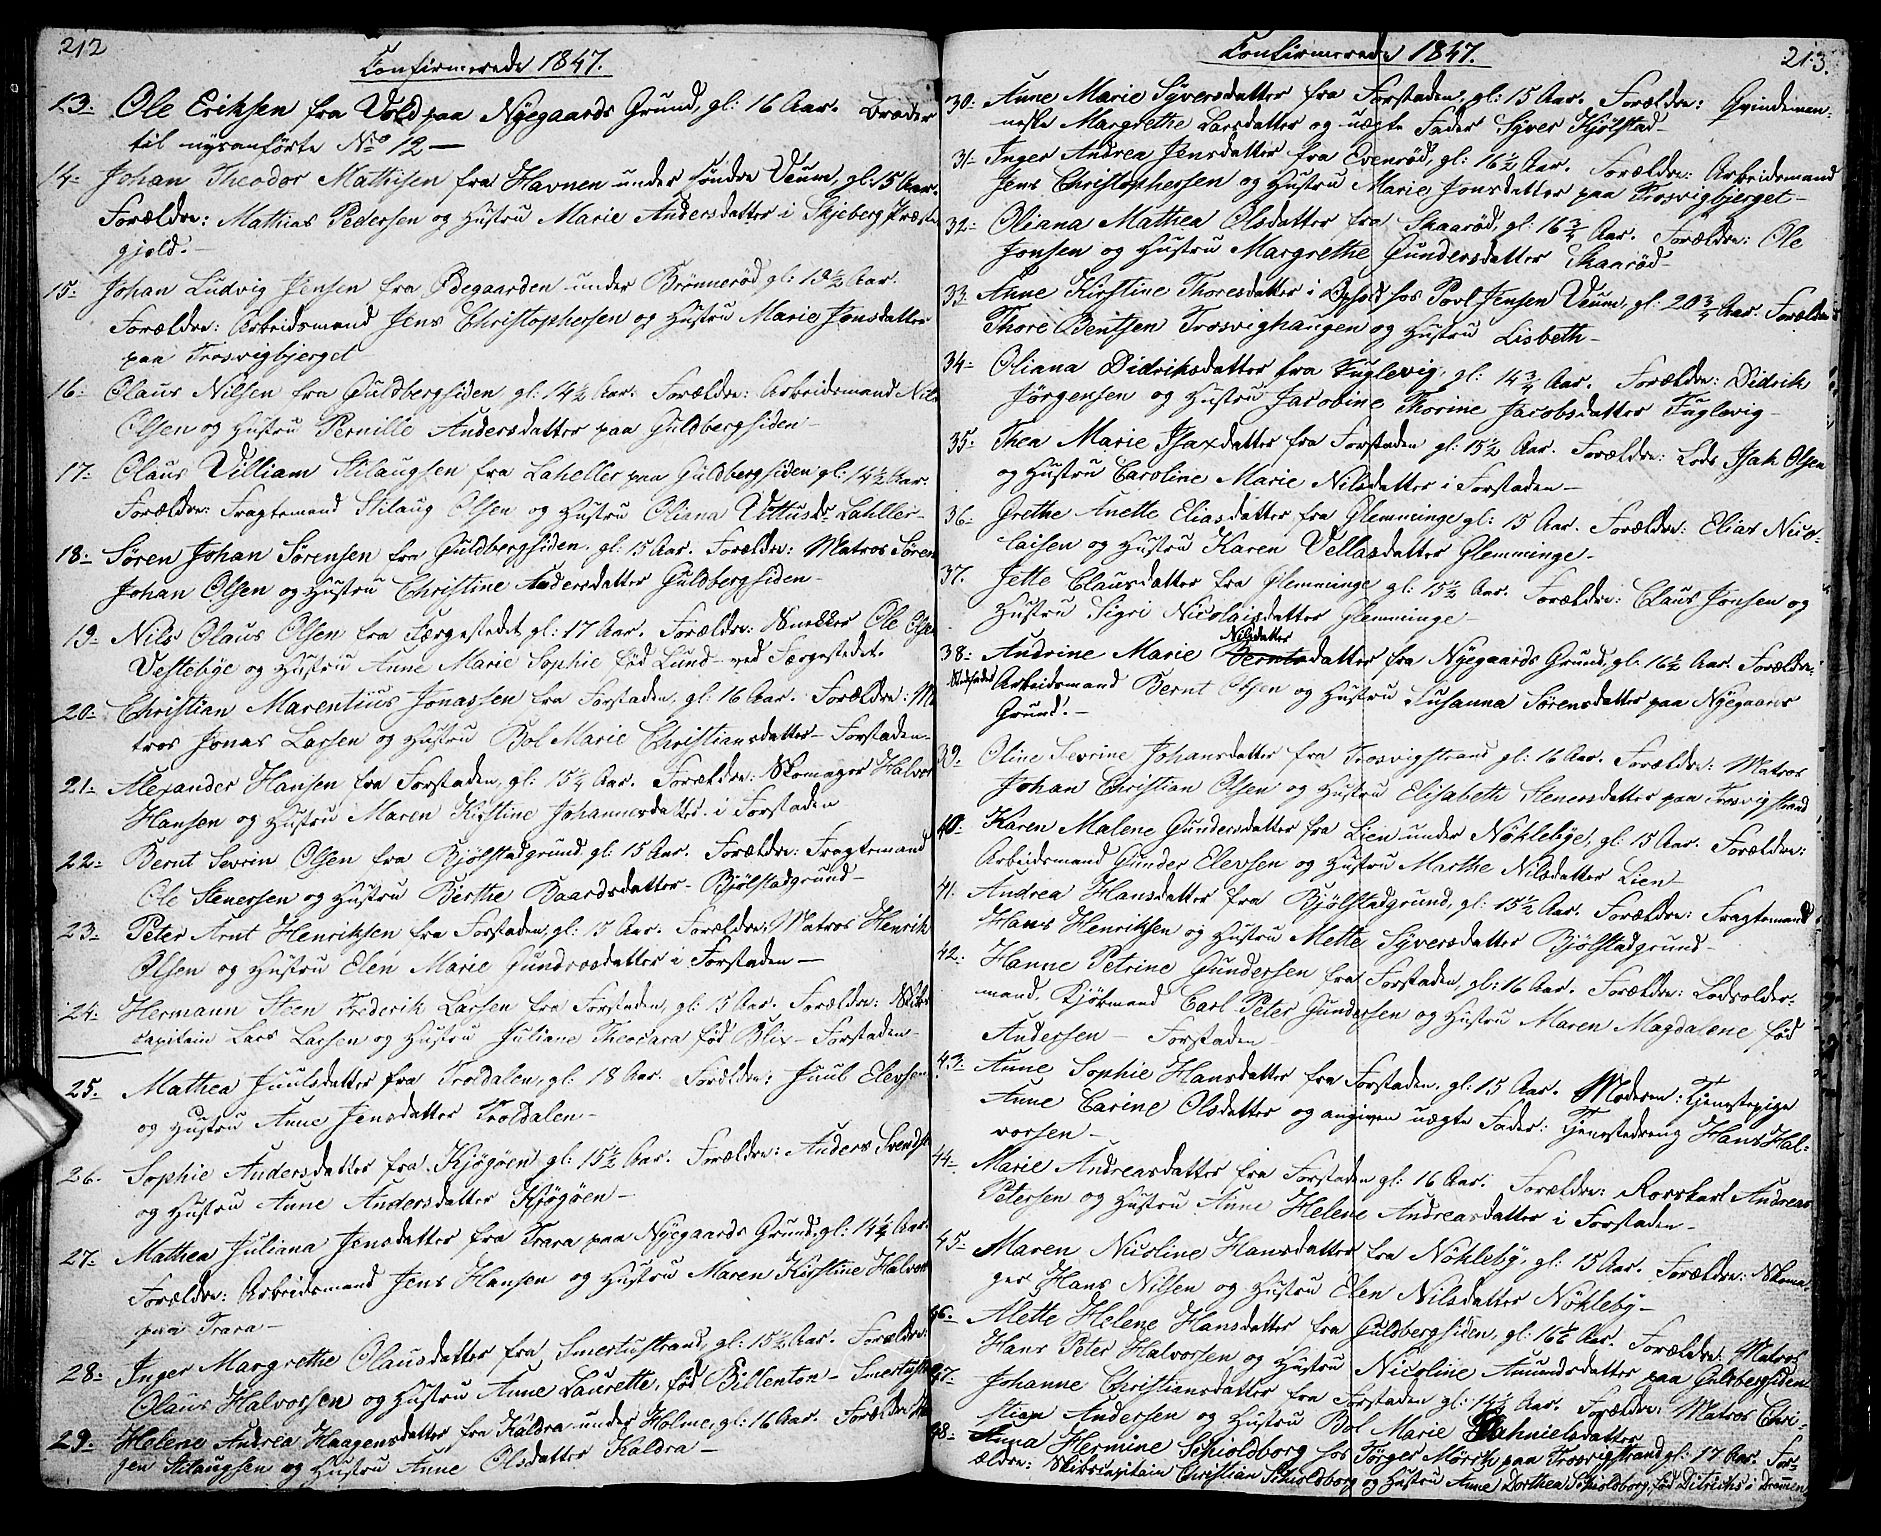 212
Confirmerede 1847.
13. Ole Eriksen fra Vold paa Nyegaards Grund, gl: 16 Aar. Broder
til nysanførte No 12 —
14. Johan Theodor Mathisen fra Havnen under søndre Veum, gl: 15 Aar.
Forældre: Mathias Pedersen og Hustru Marie Andersdatter i Skjeberg Præste
gjeld. —
15. Johan Ludvig Jensen fra Ødegaarden under Brønnerød, gl: 19½ Aar.
Forældre: Arbeidsmand Jens Christophersen og Hustru Marie Jonsdatter
paa Trosvigbjerget
16. Claus Nilsen fra Guldbergsiden gl: 14½ Aar. Forældre: Arbeidsmand Nils
Olsen og Hustru Pernille Andersdatter paa Guldbergsiden —
17. Claus Villiam Stilaugsen fra Laheller paa Guldbergsiden gl: 14½ Aar.
Forældre: Fragtemand Stilaug Olsen og Hustru Oliana Vittusdr Lahller —
18. Søren Johan Sørensen fra Guldbergsiden, gl: 15 Aar. Forældre: Matros Søren
Johan Olsen og Hustru Christine Andersdatter Guldbergsiden —
19. Nils Claus Olsen fra Færgestedet gl: 17 Aar. Forældre: Snekker Ole Olsen
Vestebye og Hustru Anne Marie Sophie fød Lund — ved Færgestedet.
20. Christian Marentius Jonassen fra Forstaden, gl: 16 Aar. Forældre: Ma
tros Jonas Larsen og Hustru Bol Marie Christiansdatter — Forstaden —
21. Alexander Hansen fra Forstaden, gl: 15¼ Aar. Forældre: Skomager Halvor
Hansen og Hustru Maren Kirstine Johannesdatter i Forstaden
22. Bernt Sevrin Olsen fra Bjølstadgrund gl: 15 Aar. Forældre: Fragtemand
Ole Stenersen og Hustru Berthe Baardsdatter — Bjølstadgrund —
23. Peter Arnt Henriksen fra Forstaden, gl: 15 Aar. Forældre: Matros Henrik
Olsen og Hustru Elen Marie Gundrosdatter i Forstaden —
24. Hermann Steen Frederik Larsen fra Forstaden, gl: 15 Aar. Forældre: Skibs
capitain Lars Larsen og Hustru Juliane Theodara fød Blix — Forstaden —
25. Mathea Juulsdatter fra Troldalen, gl: 18 Aar. Forældre: Juul Elevsen
og Hustru Anne Jensdatter Troldalen —
26. Sophie Andersdatter fra Kjøgøen gl: 15½ Aar. Forældre: Anders Svends
og Hustru Anne Andersdatter Kjøgøen —
27. Mathea Juliana Jensdatter fra Trara paa Nyegaards Grund, gl: 14½ Aar.
Forældre: Arbeidsmand Jens Hansen og Hustru Maren Kirstine Halvors
paa Trara —
28. Inger Margrethe Clausdatter fra Smertustrand, gl: 15½ Aar. Forældre:
Claus Halvorsen og Hustru Anne Laurette, fød Billenton — Smertust
29. Helene Andrea Haagensdatter fra Kaldra under Holme, gl: 16 Aar. Forældre: Haa
gen Stilaugsen og Hustru Anne Olsdatter Kaldra —
Confirmerede 1847.
213.
30. Anne Marie Syversdatter fra Forstaden, gl: 15 Aar. Forældre: Qvindemen-
neske Margrethe Larsdatter og uægte Fader Syver Kjølstad —
31. Inger Andrea Jensdatter fra Evenrød, gl: 16½ Aar. Forældre: Arbeidsmand
Jens Christophersen og Hustru Marie Jonsdatter paa Trosvigbjerget —
32. Oliana Mathea Olsdatter fra Skaarød, gl: 16¾ Aar. Forældre: Ole
Jonsen og Hustru Margrethe Gundersdatter Skaarød —
33. Anne Kirstine Thoresdatter i Ophold hos Povl Jensen Veum, gl: 20¾ Aar. Forældre:
Thore Bentsen Trosvighaugen og Hustru Lisbeth —
34. Oliana Didriksdatter fra Fuglevig, gl: 14¾ Aar. Forældre: Didrik
Jørgensen og Hustru Jacobine Thorine Jacobsdatter Fuglevig —
35. Thea Marie Isaxdatter fra Forstaden gl: 15½ Aar. Forældre: Lods Isak Olsen
og Hustru Caroline Marie Nilsdatter i Forstaden —
36. Grethe Anette Eliasdatter fra Glemminge gl: 15 Aar. Forældre: Elias Nico-
laisen og Hustru Karen Vellasdatter Glemminge —
37. Jette Clausdatter fra Glemminge gl: 15½ Aar. Forældre: Claus Jonsen og
Hustru Sigri Nicolaisdatter Glemminge —
Nilsdatter
38. Andrine Marie Berntsdatter fra Nyegaards Grund, gl: 16½ Aar. Forældre:
Stedfader Arbeidsmand Bernt Olsen og Hustru Susanna Sørensdatter paa Nyegaards
Grund. —
39. Oline Sevrine Johansdatter fra Trosvigstrand gl: 16 Aar. Forældre: Matros
Johan Christian Olsen og Hustru Elisabeth Stenersdatter paa Trosvigstrand
40. Karen Malene Gundersdatter fra Lien under Nøklebye, gl: 15 Aar. Forældre:
Arbeidsmand Gunder Elevsen og Hustru Marthe Nilsdatter Lien —
41. Andrea Hansdatter fra Bjølstadgrund, gl: 15½ Aar. Forældre: Fragtemand
Hans Henriksen og Hustru Mette Syversdatter Bjølstadgrund —
42. Hanne Petrine Gundersen fra Forstaden, gl: 16 Aar. Forældre: Lodsolder-
mand, Kjøbmand Carl Peter Gundersen og Hustru Maren Magdalene fød
Andersen — Forstaden —
43. Anne Sophie Hansdatter fra Forstaden, gl: 15 Aar. Moderen: Tjenestepige
Anne Carine Olsdatter og angiven uægte Fader: Tjenestedreng Hans Hal-
vorsen —
44. Marie Andreasdatter fra Forstaden gl: 16 Aar. Forældre: Rorskarl Andreas
Petersen og Hustru Anne Helene Andreasdatter i Forstaden —
45. Maren Nicoline Hansdatter fra Nøkleby, gl: 15 Aar. Forældre: Skoma-
ger Hans Nilsen og Hustru Elen Nilsdatter Nøkleby —
46. Mette Helene Hansdatter fra Guldbergsiden, gl: 16½ Aar. Forældre: Matros
Hans Peter Halvorsen og Hustru Nicoline Amundsdatter paa Guldbergsiden
47. Johanne Christiansdatter fra Forstaden gl: 14½ Aar. Forældre: Matros Chri-
stian Andersen og Hustru Bol Marie Dahnielsdatter
48. Anna Hermine Schioldborg hos Jørger Mørch paa Trosvigstrand gl: 17 Aar. For-
ældre: Skibscapitain Christian Schioldborg og Hustru Anne Dorthea Schioldborg, fød Ditrichs i Drammen